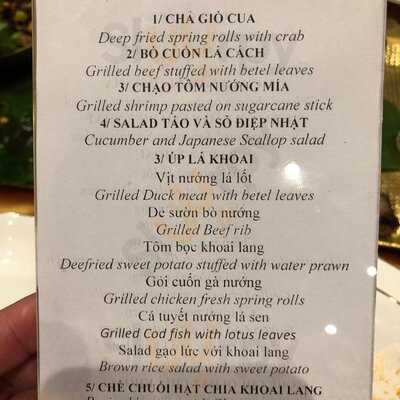 1/ CHẢ GIÒ CUA
Deep fried spring rolls with crab
2/ BÒ CUỐN LÁ CÁCH
Grilled beef stuffed with betel leaves
3/ CHẠO TÔM NƯỚNG MÍA
Grilled shrimp pasted on sugarcane stick
4/ SALAD TÁO VÀ SÒ ĐIỆP NHẬT
Cucumber and Japanese Scallop salad
3/ ÚP LÁ KHOAI
Vịt nướng lá lốt
Grilled Duck meat with betel leaves
Dẻ sườn bò nướng
Grilled Beef rib
Tôm bọc khoai lang
Deefried sweet potato stuffed with water prawn
Gỏi cuốn gà nướng
Grilled chicken fresh spring rolls
Cá tuyết nướng lá sen
Grilled Cod fish with lotus leaves
Salad gạo lức với khoai lang
Brown rice salad with sweet potato
5/ CHÈ CHUỐI HẠT CHIA KHOAI LANG